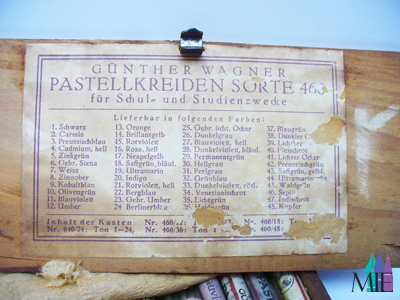 GÜNTHER WAGNER
PASTELLKREIDEN SORTE 46
für Schul- und Studienzwecke
Lieferbar in folgenden Farben:
1. Schwarz
2. Carmin
3. Preussischblau
4. Cadmium, hell
5. Zinkgrün
6. Gebr. Siena
7. Weiss
8. Zinnober
9. Kobaltblau
10. Olivengrün
11. Blauviolett
12. Umber
13. Orange
14. Brillantgelb
15. Rotviolett
16. Rosa, hell
17. Neapelgelb
18. Saftgrün, bläul.
19. Ultramarin
20. Indigo
21. Rotviolett, hell
22. Bergblau
23. Gebr. Umber
24. Berlinerbla
25. Gebr. licht. Ocker
26. Dunkelgrau
27. Blauviolett, hell
28. Dunkelviolett, bläul.
29. Permanentgrün
30. Hellgrau
31. Perlgrau
32. Grünblau
33. Dunkelviolett, röt
34. Venetianischrot
35. Lichtgrün
37. Blaugrün
38. Dunkler
39. Lichter
40. Fleischrot
41. Lichter Ocker
42. Preussischgrün
43. Saftgrün, gelbl.
44. Ultramarin
45. Waldgrün
46. Sepia
47. Indischrot
48. Kupfer
Inhalt der Kasten Nr. 460/12: Nr. 460/18:
Nr. 460/24: Ton 1-24, Nr. 460/36: Ton 1 460/48: